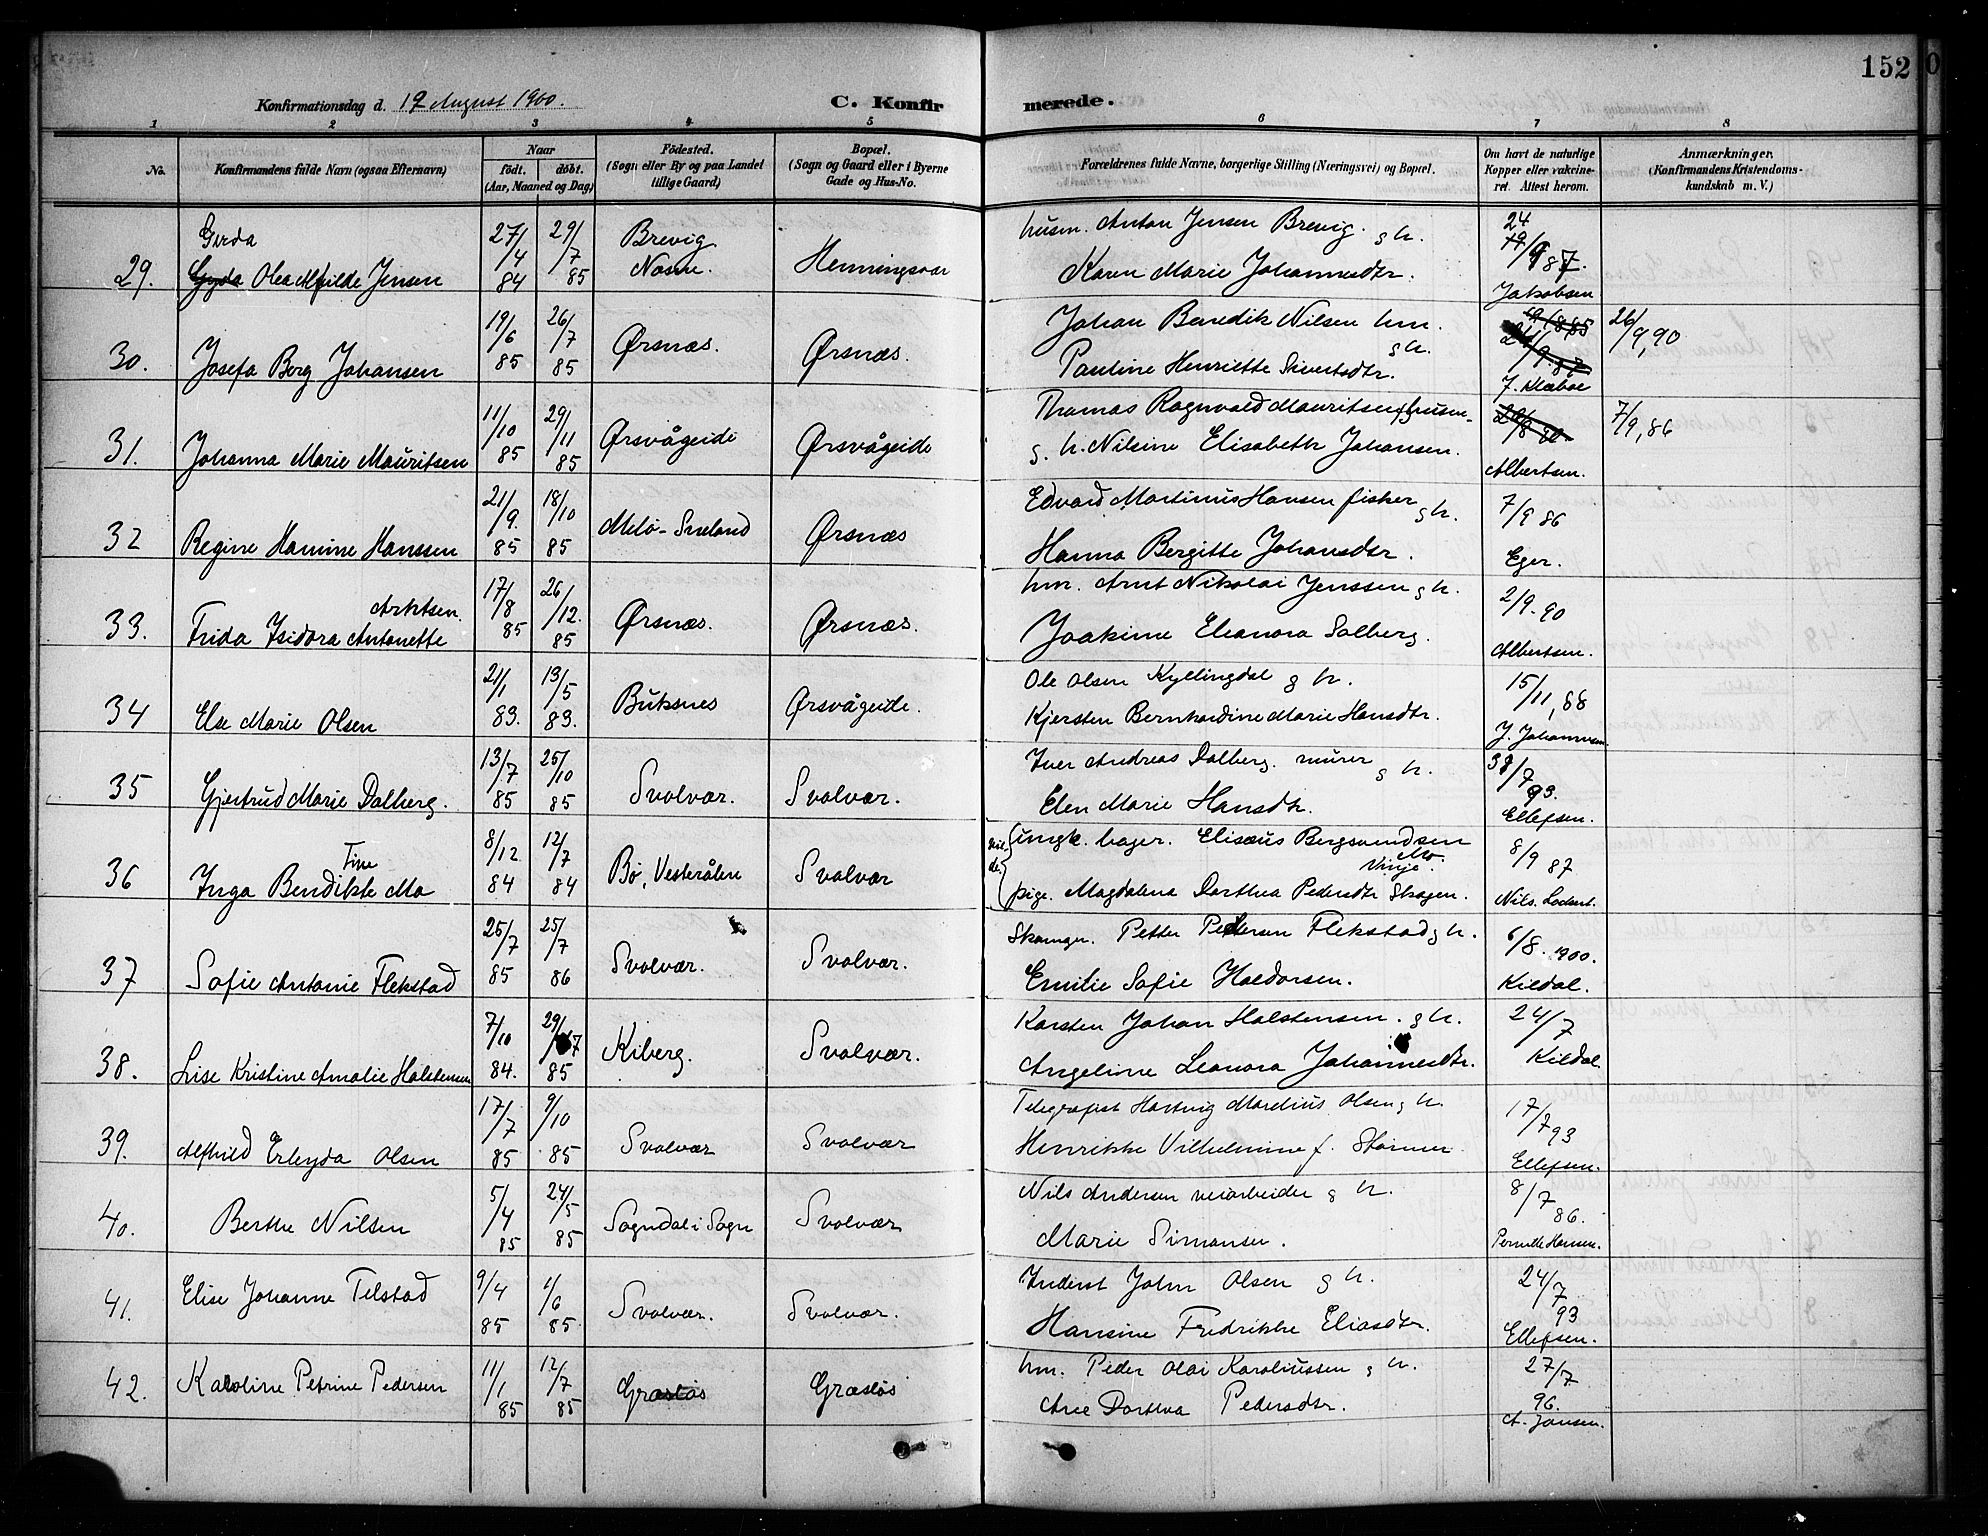 152
Konfirmationsdag d. 12 August 1900.
C. Konfirmerede.
1 2 3 4 5 6 7 8
No.
Konfirmandens fulde Navn (ogsaa Efternavn)
Naar
födt. döbt.
(Aar, Maaned og Dag)
Födested.
(Sogn eller By og paa Landet
tillige Gaard)
Bopæl.
(Sogn og Gaard eller i Byerne
Gade og Hus-No.
Forældrenes fulde Navne, borgerlige Stilling (Næringsvei) og Bopæl.
Om havt de naturlige
Kopper eller vakcine-
ret. Attest herom.
Anmærkninger.
(Konfirmandens Kristendoms-
kundskab m. V.)
Gerda
29. Gyda Olea Alfhilde Jensen 27/4 84 29/7 85 Brevig Henningsvær
husm. Anton Jensen Brevig. g h.
Karen Marie Johannesdtr. 24/9 87. Jakobsen
30. Josefa Berg Johansen 19/6 85 26/7 85 Ørsnæs. Ørsnæs.
Johan Benedik Nilsen hm. g h.
Pauline Henriette Sivertsdtr. J. Klæboe 26/9, 90
31. Johanna Marie Mauritsen 11/10 85 29/11 85 Ørsvågeide Ørsvågeide
Thomas Ragnvald Mauritsen husm.
g. h. Nilsine Elisabeth Johansen. Albertsen. 7/9, 86
32 Regine Hamine Hanssen 21/9. 85 18/10 85 Melö- Ørsnæs
Edvard Martinus Hansen fisker g h.
Hanna Bergitte Johansdtr. 7/9 86 Eger.
Arntsen.
33. Frida Isidora Antonette 17/8 85 26/12. 85 Ørsnæs. Ørsnæs.
hm. Arnt Nikolai Jenssen g h.
Joakime Eleanora Solberg. 2/9. 90 Albertsen.
34 Else Marie Olsen 21/1 83. 13/5 83. Buksnes Ørsvågeide.
Ole Olsen Kyllingdal g h.
Kjersten Bernhardine Marie Hansdtr. 15/11, 88 J. Johannesen
35 Gjertrud Marie Dalberg. 13/7 85 25/10 85 Svolvær. Svolvær.
Iver Andreas Dalberg. murer g h.
Elen Marie Hansdtr. /7 93. Ellefsen.
Tine
36 Inga Bendikte Mo 8/12 84 12/7 84 Bø, Vesterålen Svolvær
ungk. bager. Elisæus Bergsvendsen
Mo. Vinje.
pige. Magdalena Dorthea Pedersdtr Skagen. 8/9 87
37 Sofie Antonie Flekstad 25/7 85 25/7 86 Svolvær. Svolvær.
Skomgr. Petter Pettersen Flekstad g h.
Emilie Sofie Haldorsen. 6/8. 1900. Kildal.
38. Lise Kristine Amalie Halstensen 7/10 84. 29/7 85 Kiberg. Svolvær.
Karsten Johan Halstensen. g h.
Angeline Leonora Johannesdtr. 24/7 Kildal
39. Alfhild Erleyda Olsen 17/7 85 9/10 85 Svolvær Svolvær
Telegrafist Hartvig Mardius Olsen g h.
Henrikke Vilhelmine f. Størmer 17/7 93 Ellefsen.
40. Berthe Nilsen 5/4 85 24/5 85 Sogndal i Sogn Svolvær
Nils Andersen veiarbeider g h.
Marie Simonsen. 8/7 86. Pernille Hansen.
41. Elise Johanne Tilstad 9/4 85 1/6 85. Svolvær. Svolvær.
Inderst John Olsen g h.
Hansine Fredrikke Eliasdtr. 24/7 93 Ellefsen.
42. Karoline Petrine Pedersen 11/1 85 12/7 85 Græsløs Græsløs
hm. Peder Olai Karoliussen g h.
Ane Dorthea Pedersdtr. 27/7 96. A. Jansen.